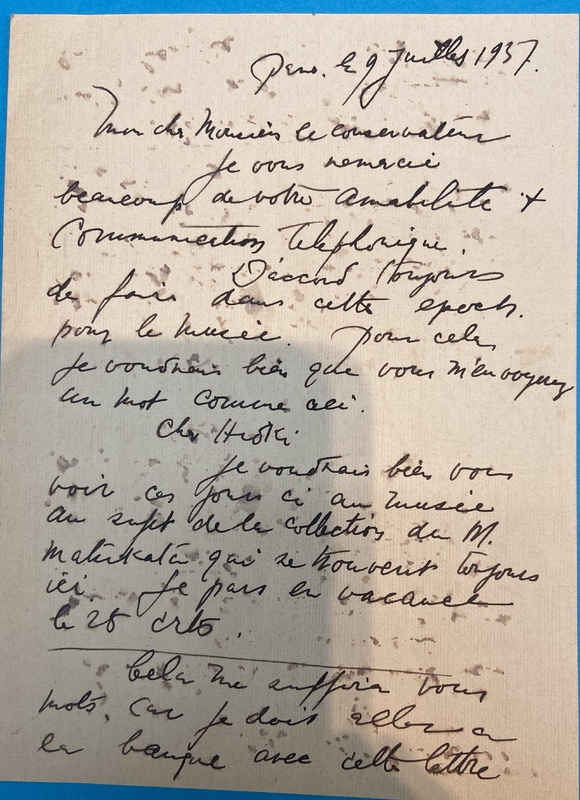 Paris. le 9 Juillet 1937.
Mon cher Monsieur le conservateur
Je vous remercie
beaucoup de votre amabilite +
Communication telephonique.
D'accord toujours
de faire dans cette epoch.
pour le musée. pour cela
Je voudrais bien que vous m'envoyez
un mot comme ceci.
Cher Hioki
Je voudrais bien vous
voir ces jours ci au musée
au sujet de la collection du M.
Matsukata qui se trouvent toujours
ici. Je pars en vacance
le 28 crts.
Cela me suffira vous
mots. Car je dois aller a
la banque avec cette lettre